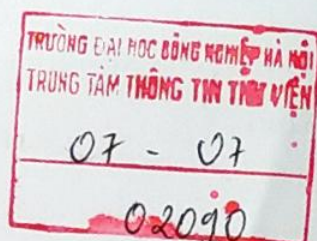 TRƯỜNG ĐẠI HỌC CÔNG NGHIỆP HÀ NỘI
TRUNG TÂM THÔNG TIN THƯ VIỆN
07 - 07
02090